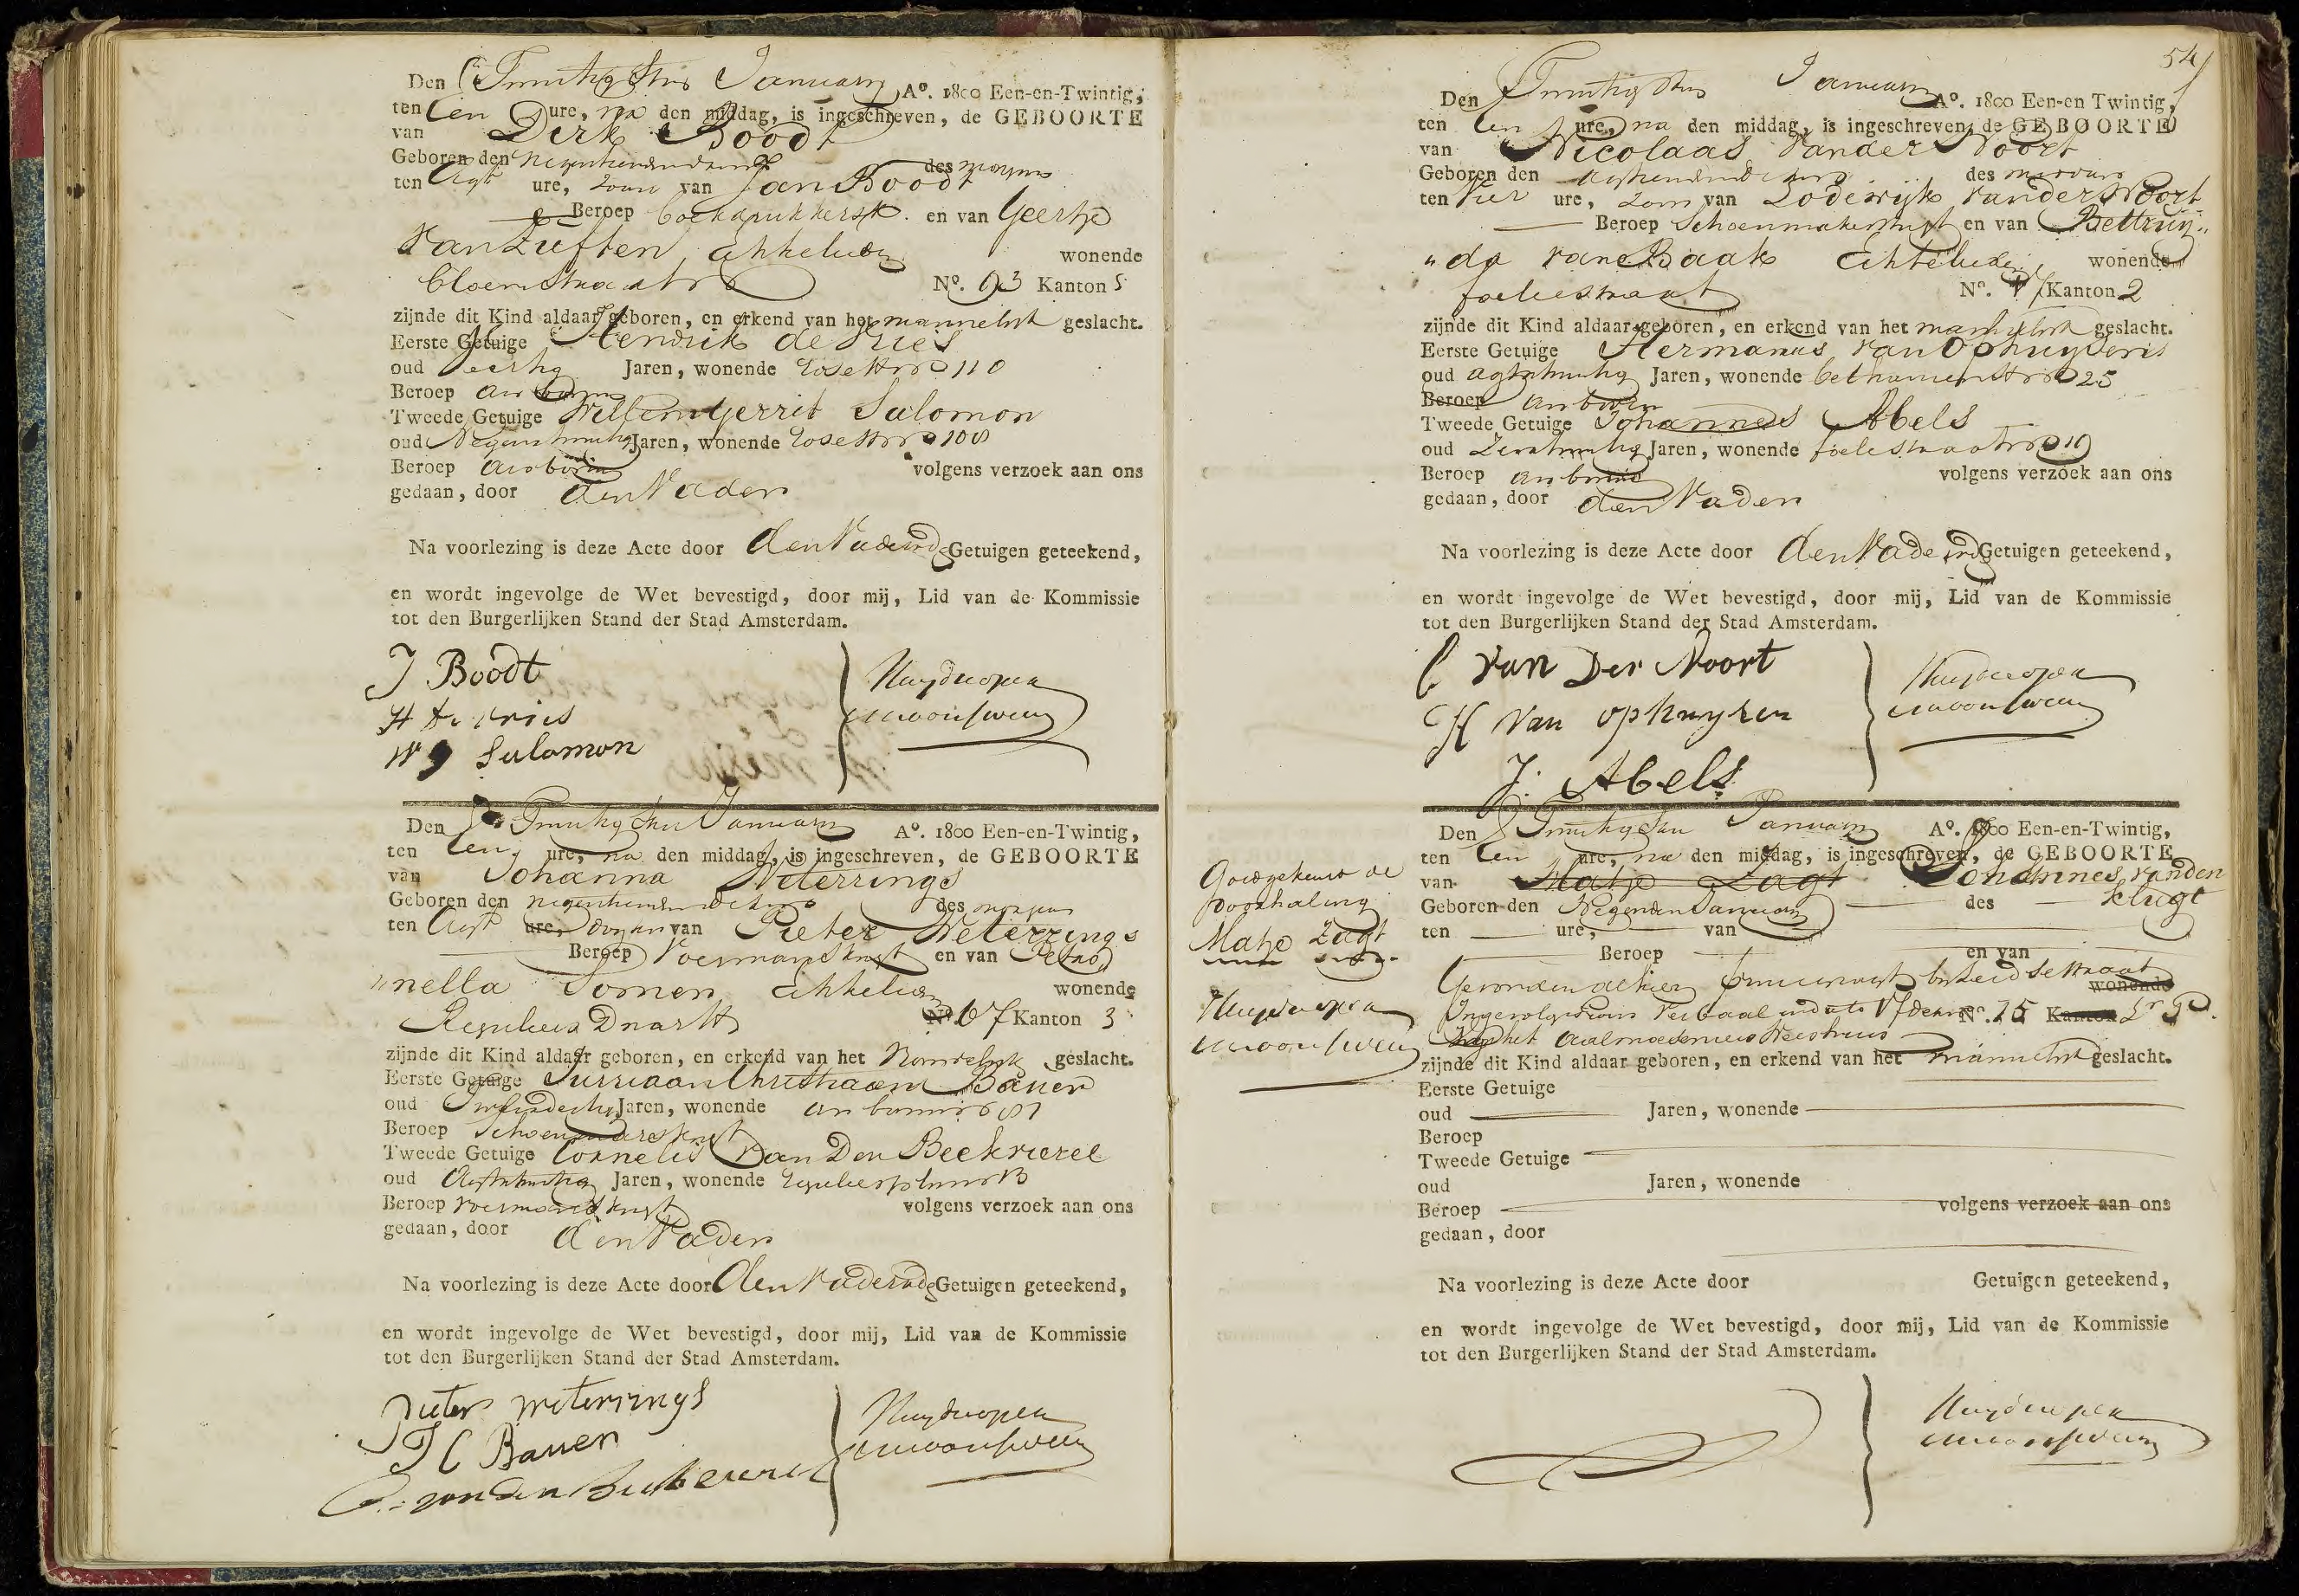 Den Twintigsten January Aº. 1800 Een-en-Twintig,
ten Een ure, na den middag, is ingeschreven, de GEBOORTE
van Dirk Boodt
Geboren den negentienden dezer des morgens
ten Agt ure, Zoon van Jan Boodt
Beroep Boekdrukkersk. en van Geertje
Van Zuften Echtelieden wonende
Bloemstraat Nº. 93 Kanton 5
zijnde dit Kind aldaar geboren, en erkend van het mannelyk geslacht.
Eerste Getuige Hendrik de Vries
oud Veertig Jaren, wonende Rosestr no 110
Beroep
Tweede Getuige Willem Gerrit Salomon
oud Jaren, wonende Rosestr no 108
Beroep volgens verzoek aan ons
gedaan, door den Vader
Na voorlezing is deze Acte door den Vader en de Getuigen geteekend,
en wordt ingevolge de Wet bevestigd, door mij, Lid van de Kommissie
tot den Burgerlijken Stand der Stad Amsterdam.
J Boodt
H de Vries
W G Salomon
Huydecoper
Den Twintigsten January Aº. 1800 Een-en-Twintig,
ten Een ure, na den middag, is ingeschreven, de GEBOORTE
van Johanna Weterrings
Geboren den negentienden dezer des morgens
ten Agt ure, dogter van Pieter Weterrings
Beroep Voermansknegt en van Petro
"nella Somer Echtelieden wonende
Reguliers Dwarsstr Nº. 67 Kanton 3
zijnde dit Kind aldaar geboren, en erkend van het Vrouwelyk geslacht.
Eerste Getuige Jurriaan Christiaan Bauer
oud Jaren, wonende
Beroep Schoenmakersknegt
Tweede Getuige Cornelis Van Den Beekrierel
oud Jaren, wonende
Beroep voermansknegt volgens verzoek aan ons
gedaan, door den Vader
Na voorlezing is deze Acte door den Vader en de Getuigen geteekend,
en wordt ingevolge de Wet bevestigd, door mij, Lid van de Kommissie
tot den Burgerlijken Stand der Stad Amsterdam.
Pieter Weterrings
J C Bauer
Huydecoper
54
Den Twintigsten January Aº. 1800 Een-en Twintig,
ten Een ure, na den middag, is ingeschreven, de GEBOORTE
van Nicolaas Vander Noort
Geboren den agttienden dezer des morgens
ten Vier ure, Zoon van Lodewijk Vander Noort
Beroep Schoenmakersknegt en van Bettruy"
"da van Baak Echtelieden wonende
foeliestraat Nº. 17 Kanton 2
zijnde dit Kind aldaar geboren, en erkend van het mannelyk geslacht.
Eerste Getuige Hermanus Van Ophuysen
oud Jaren, wonende 25
Beroep
Tweede Getuige Johannes Abels
oud Jaren, wonende foeliestraat no 19
Beroep volgens verzoek aan ons
gedaan, door den Vader
Na voorlezing is deze Acte door den Vader en de Getuigen geteekend,
en wordt ingevolge de Wet bevestigd, door mij, Lid van de Kommissie
tot den Burgerlijken Stand der Stad Amsterdam.
L van Der Noort
H van Ophuyzen
J: Abels
Huydecoper
Den Twintigsten January Aº. 1800 Een-en-Twintig,
ten Een ure, na den middag, is ingeschreven, de GEBOORTE
van Matje Zagt Johannes vanden
Klugt
Geboren den Negenden January des
ten ure, van
Beroep en van
Gevonden alhier wonende
Ingevolge Verbaal in dato 17 Nº. 75 Kanton
het Aalmoeseniers Weeshuis
zijnde dit Kind aldaar geboren, en erkend van het mannelyk geslacht.
Eerste Getuige
oud Jaren, wonende
Beroep
Tweede Getuige
oud Jaren, wonende
Beroep volgens verzoek aan ons
gedaan, door
Na voorlezing is deze Acte door Getuigen geteekend,
en wordt ingevolge de Wet bevestigd, door mij, Lid van de Kommissie
tot den Burgerlijken Stand der Stad Amsterdam.
Huydecoper
Goedgekeurd de
doorhaling
Matje Zagt
Huydecoper